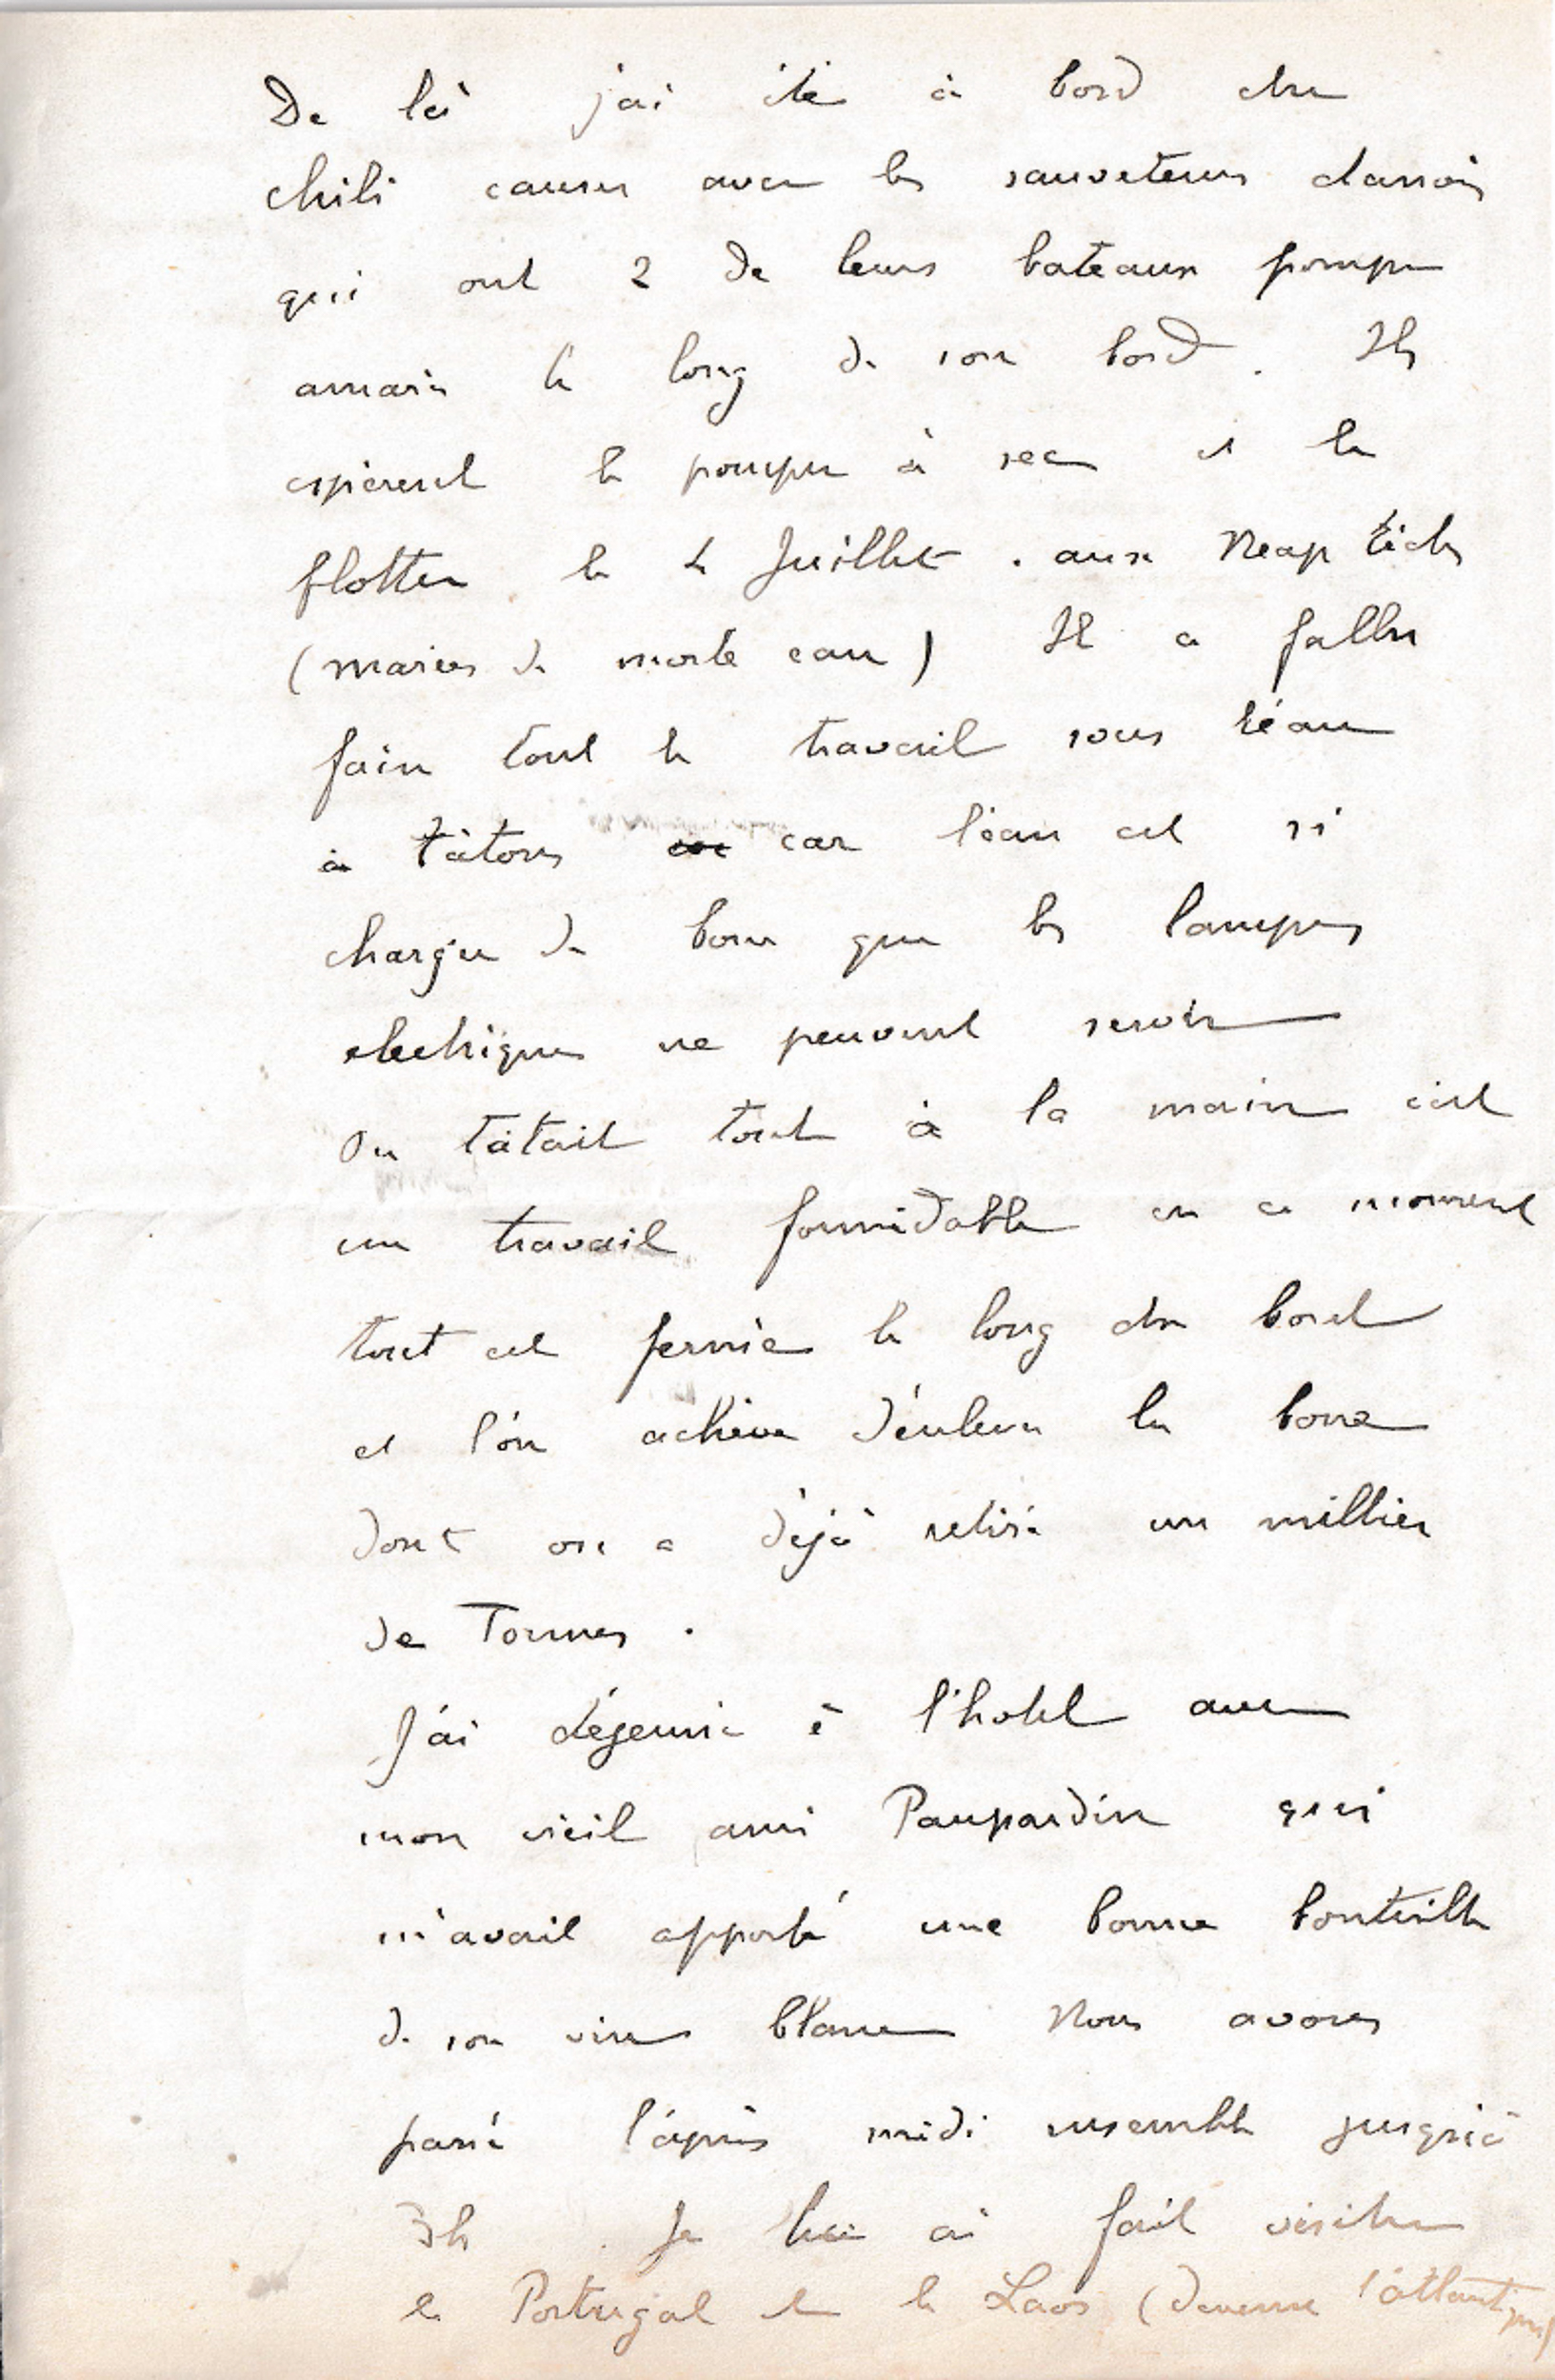 De là j'ai été à bord du
chili causer avec les sauveteurs danois
qui ont 2 de leurs bateaux pompe
amarré le long de son bord. Ils
espèrent le pomper à sec et le
flotter le 4 Juillet. aux Neap tides
(marées de morte eau) Il a fallu
faire tout le travail sous l'eau
à tâtons car l'eau est si
chargée de boue que les lampes
electriques ne peuvent servir
On tâtait tout à la main c'est
un travail formidable en ce moment
tout est fermé le long du bord
et l'on achève d'enlever la boue
dont on a déjà retiré un millier
de Tonnes.
J'ai déjeuné à l'hotel avec
mon vieil ami Paupardin qui
m'avait apporté une bonne bouteille
de son vin blanc Nous avons
passé l'après midi ensemble jusqu'à
3h Je lui ai fait visiter
le Portugal et le Laos (devenu l'atlantique)